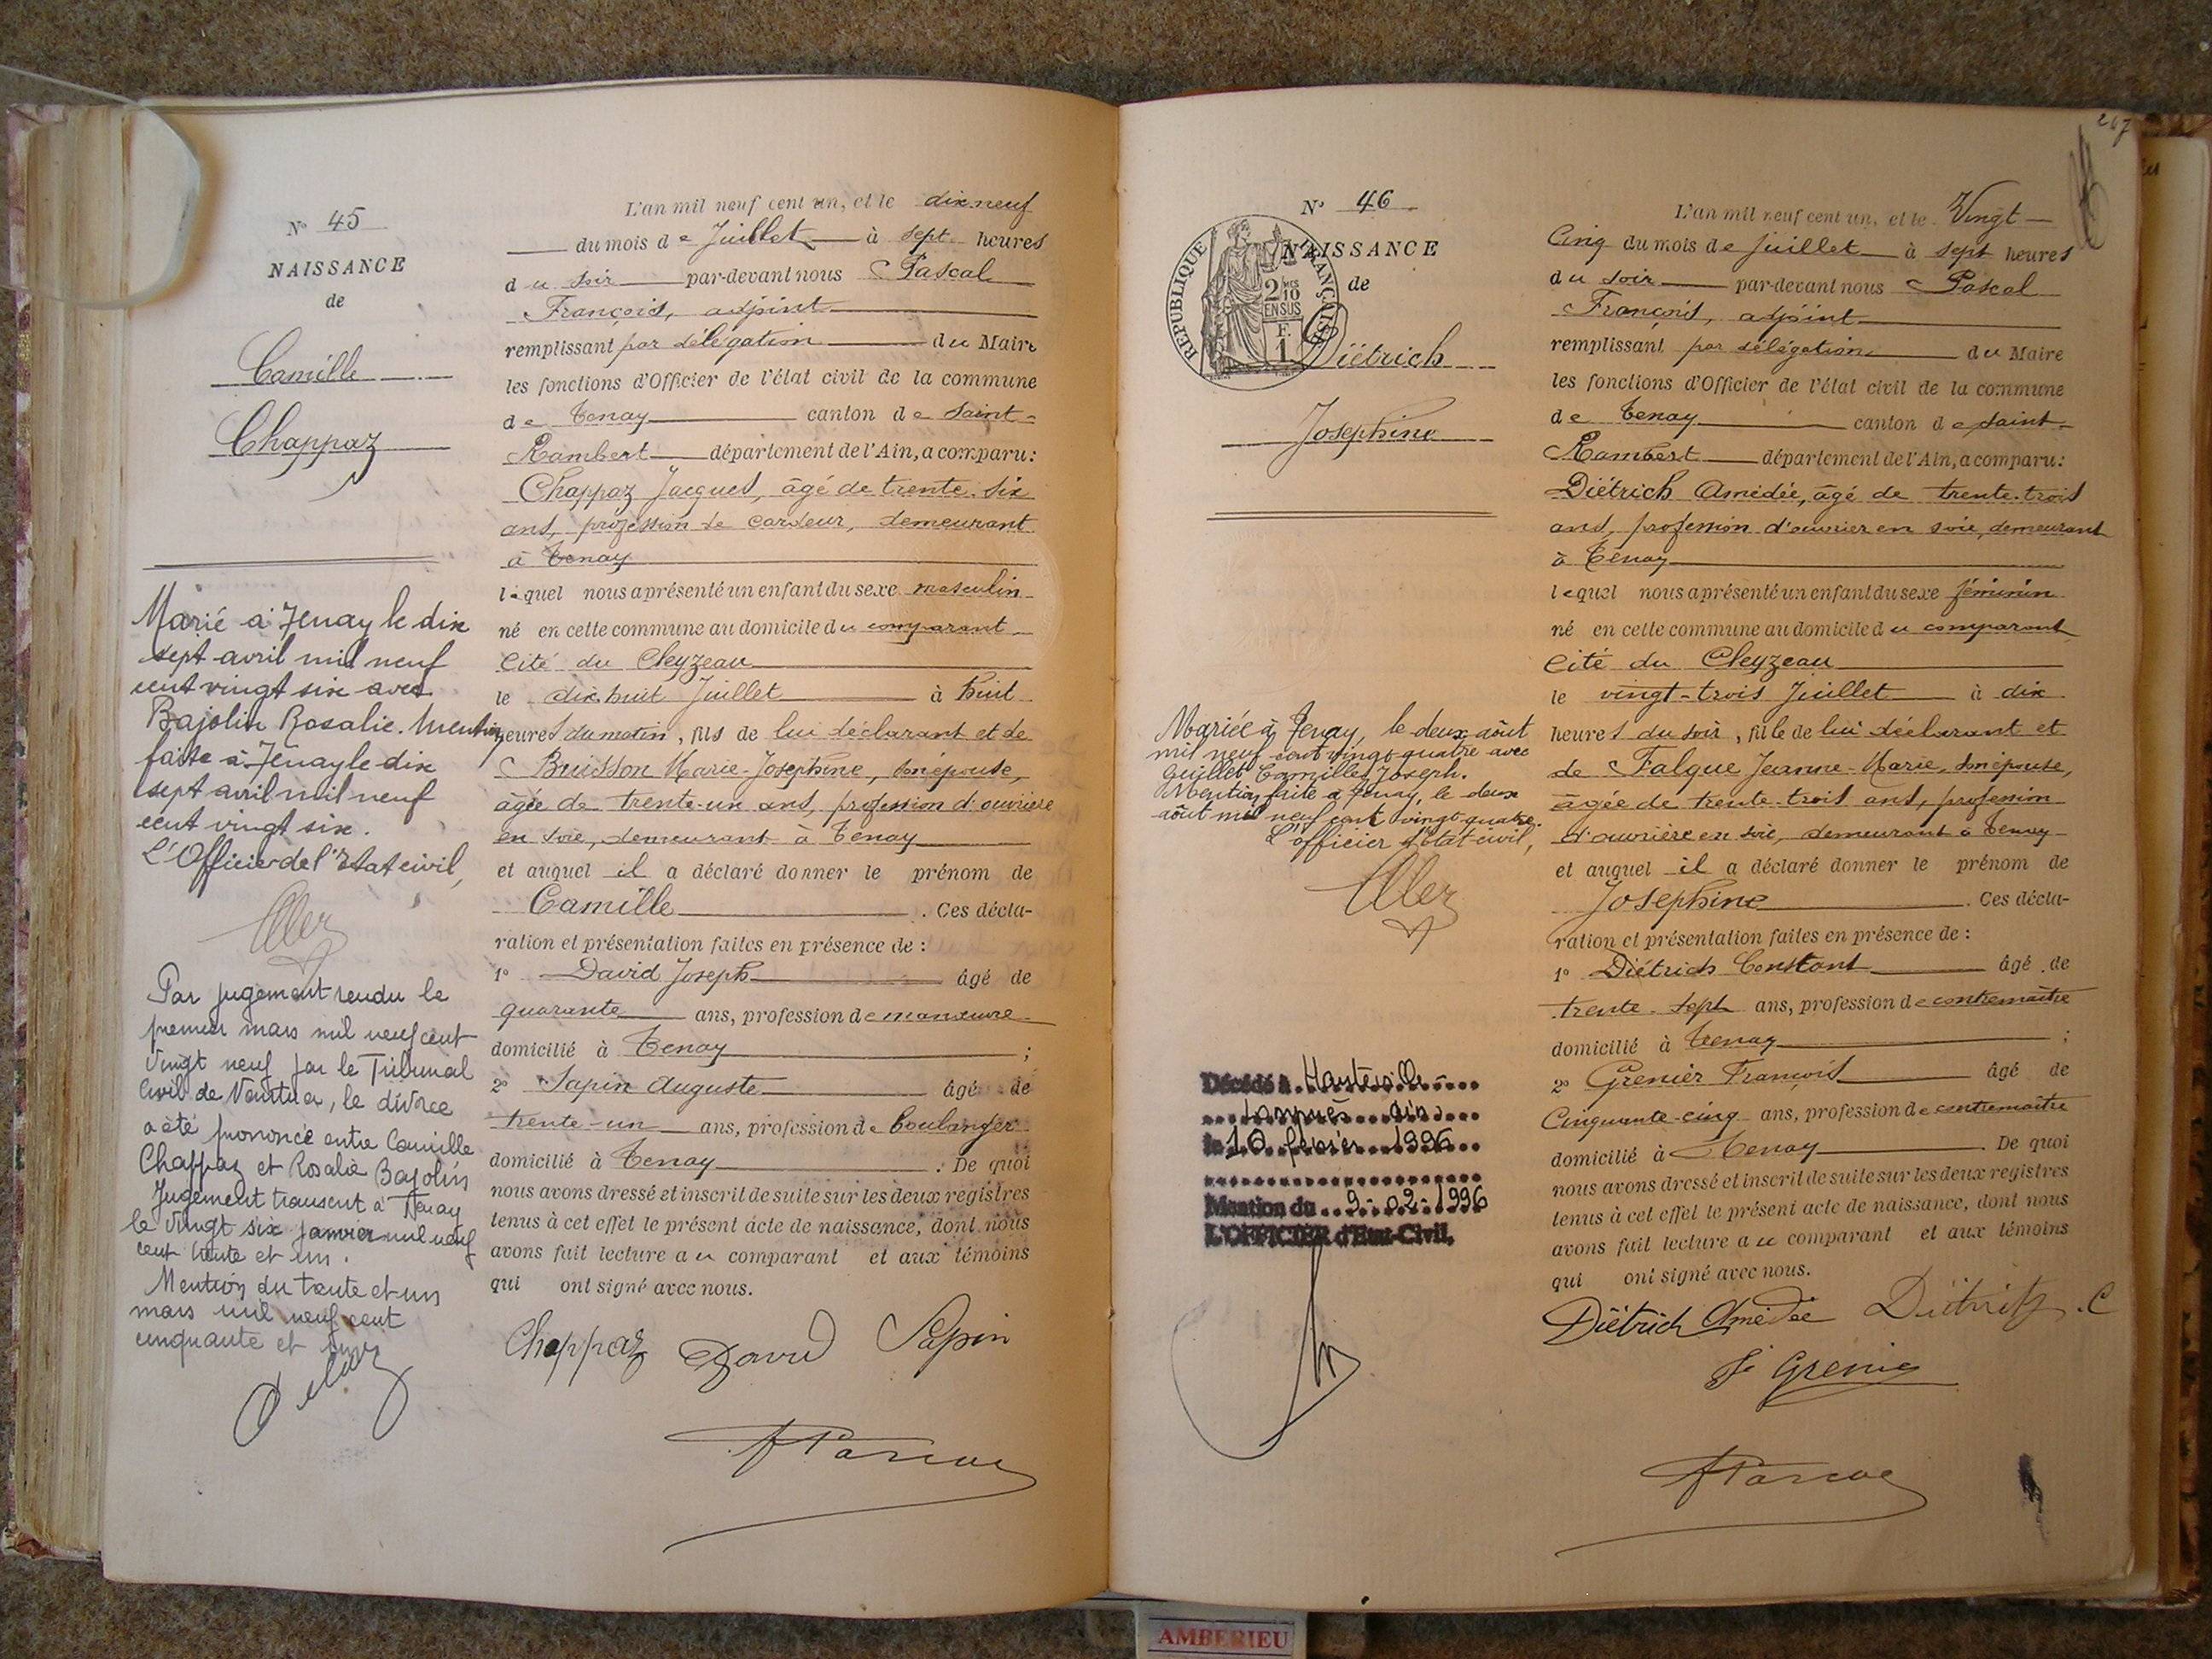 N° 45
NAISSANCE
de
Camille
Chappaz
Marié à Tenay le dix
sept avril mil neuf
cent vingt six avec
Bajolin Rosalie. Mention
faite à Tenay le dix
sept avril mil neuf
cent vingt six.
L'Officier de l'Etat civil,
Par jugement rendu le
premier mars mil neuf cent
vingt neuf par le Tribunal
Civil de Nantua, le divorce
a été prononcé entre Camille
Chappaz et Rosalie Bajolin
Jugement transcrit à Tenay
le vingt six janvier mil neuf
cent trente et un.
Mention du trente et un
mars mil neuf cent
cinquante et
L'an mil neuf cent un, et le dix-neuf
du mois de Juillet à sept heures
du soir par-devant nous Pascal
François, adjoint
remplissant par délégation du Maire
les fonctions d'Officier de l'état civil de la commune
de Tenay canton de Saint-
Rambert département de l'Ain, a comparu:
Chappaz Jacques, âgé de trente-six
ans, profession de cardeur, demeurant
à Tenay
lequel nous a présenté un enfant du sexe masculin
né en cette commune au domicile du comparant
Cité du Cleyzeau
le dix huit Juillet à huit
heures du matin, fils de lui déclarant et de
Buisson Marie-Josephine, son épouse,
âgée de trente-un ans, profession d'ouvrière
en soie, demeurant à Tenay
et auquel il a déclaré donner le prénom de
Camille. Ces décla-
ration et présentation faites en présence de :
1° David Joseph âgé de
quarante ans, profession de manœuvre
domicilié à Tenay ;
2° Sapin Auguste âgé de
trente-un ans, profession de boulanger
domicilié à Tenay. De quoi
nous avons dressé et inscrit de suite sur les deux registres
tenus à cet effet le présent acte de naissance, dont nous
avons fait lecture au comparant et aux témoins
qui ont signé avec nous.
Chappaz David Sapin
F Pascal
247
N° 46
NAISSANCE
de
RÉPUBLIQUE FRANÇAISE
2 MES
10
EN SUS
F.
1
Diétrich
Josephine
Mariée à Tenay, le deux août
mil neuf cent vingt quatre avec
Guillet Camille Joseph.
Mention faite à Tenay, le deux
août mil neuf cent vingt quatre.
L'officier d'état-civil,
Décédé à Hauteville
Lompnes Ain
le 10 février 1996
Mention du 9-02-1996
L'OFFICIER d'Etat-Civil,
L'an mil neuf cent un, et le Vingt-
Cinq du mois de Juillet à sept heures
du soir par-devant nous Pascal
François, adjoint
remplissant par délégation du Maire
les fonctions d'Officier de l'état civil de la commune
de Tenay canton de Saint-
Rambert département de l'Ain, a comparu:
Diétrich Amédée, âgé de trente-trois
ans, profession d'ouvrier en soie, demeurant
à Tenay
lequel nous a présenté un enfant du sexe féminin
né en cette commune au domicile du comparant
Cité du Cleyzeau
le vingt-trois Juillet à dix
heures du soir, fille de lui déclarant et
de Falque Jeanne-Marie, son épouse,
âgée de trente-trois ans, profession
d'ouvrière en soie, demeurant à Tenay
et auquel il a déclaré donner le prénom de
Josephine. Ces décla-
ration et présentation faites en présence de :
1° Diétrich Constant âgé de
trente-sept ans, profession de contremaître
domicilié à Tenay ;
2° Grenier François âgé de
Cinquante-cinq ans, profession de contremaître
domicilié à Tenay. De quoi
nous avons dressé et inscrit de suite sur les deux registres
tenus à cet effet le présent acte de naissance, dont nous
avons fait lecture au comparant et aux témoins
qui ont signé avec nous.
Diétrich Amédée Diétrich. C
F Grenier
F Pascal
AMBERIEU